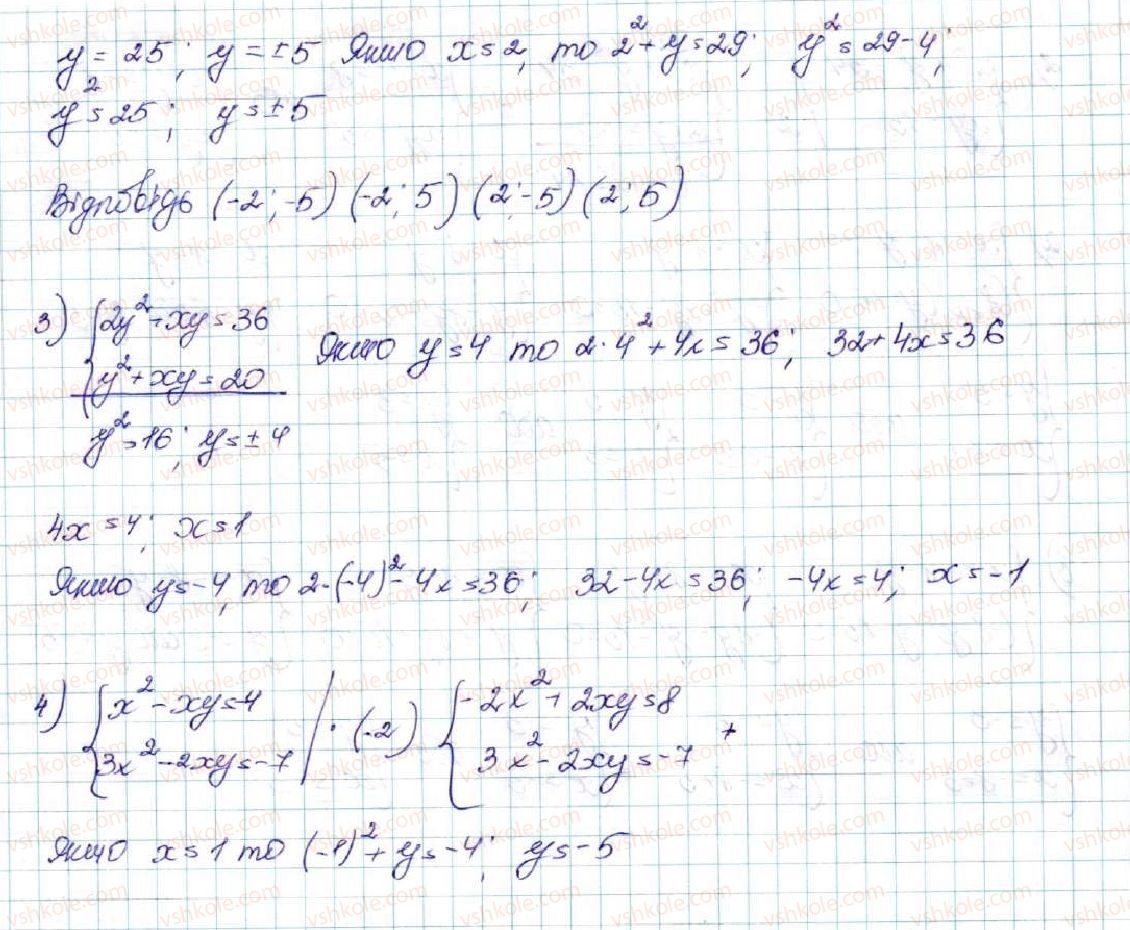 y = 25; y = ±5 Якщо x = 2, то 2² + y = 29; y² = 29 - 4;
y² = 25; y = ±5
Відповідь (-2; -5) (-2; 5) (2; -5) (2; 5)
3) { 2y² + xy = 36
y² + xy = 20
Якщо y = 4 то 2 · 4² + 4x = 36; 32 + 4x = 36
y² = 16; y = ±4
4x = 4; x = 1
Якщо y = -4, то 2 · (-4)² - 4x = 36; 32 - 4x = 36; -4x = 4; x = -1
4) { x² - xy = 4 | · (-2) { -2x² + 2xy = 8
3x² - 2xy = -7 3x² - 2xy = -7 +
Якщо x = 1 то (-1)² + y = -4; y = -5
vshkole.com